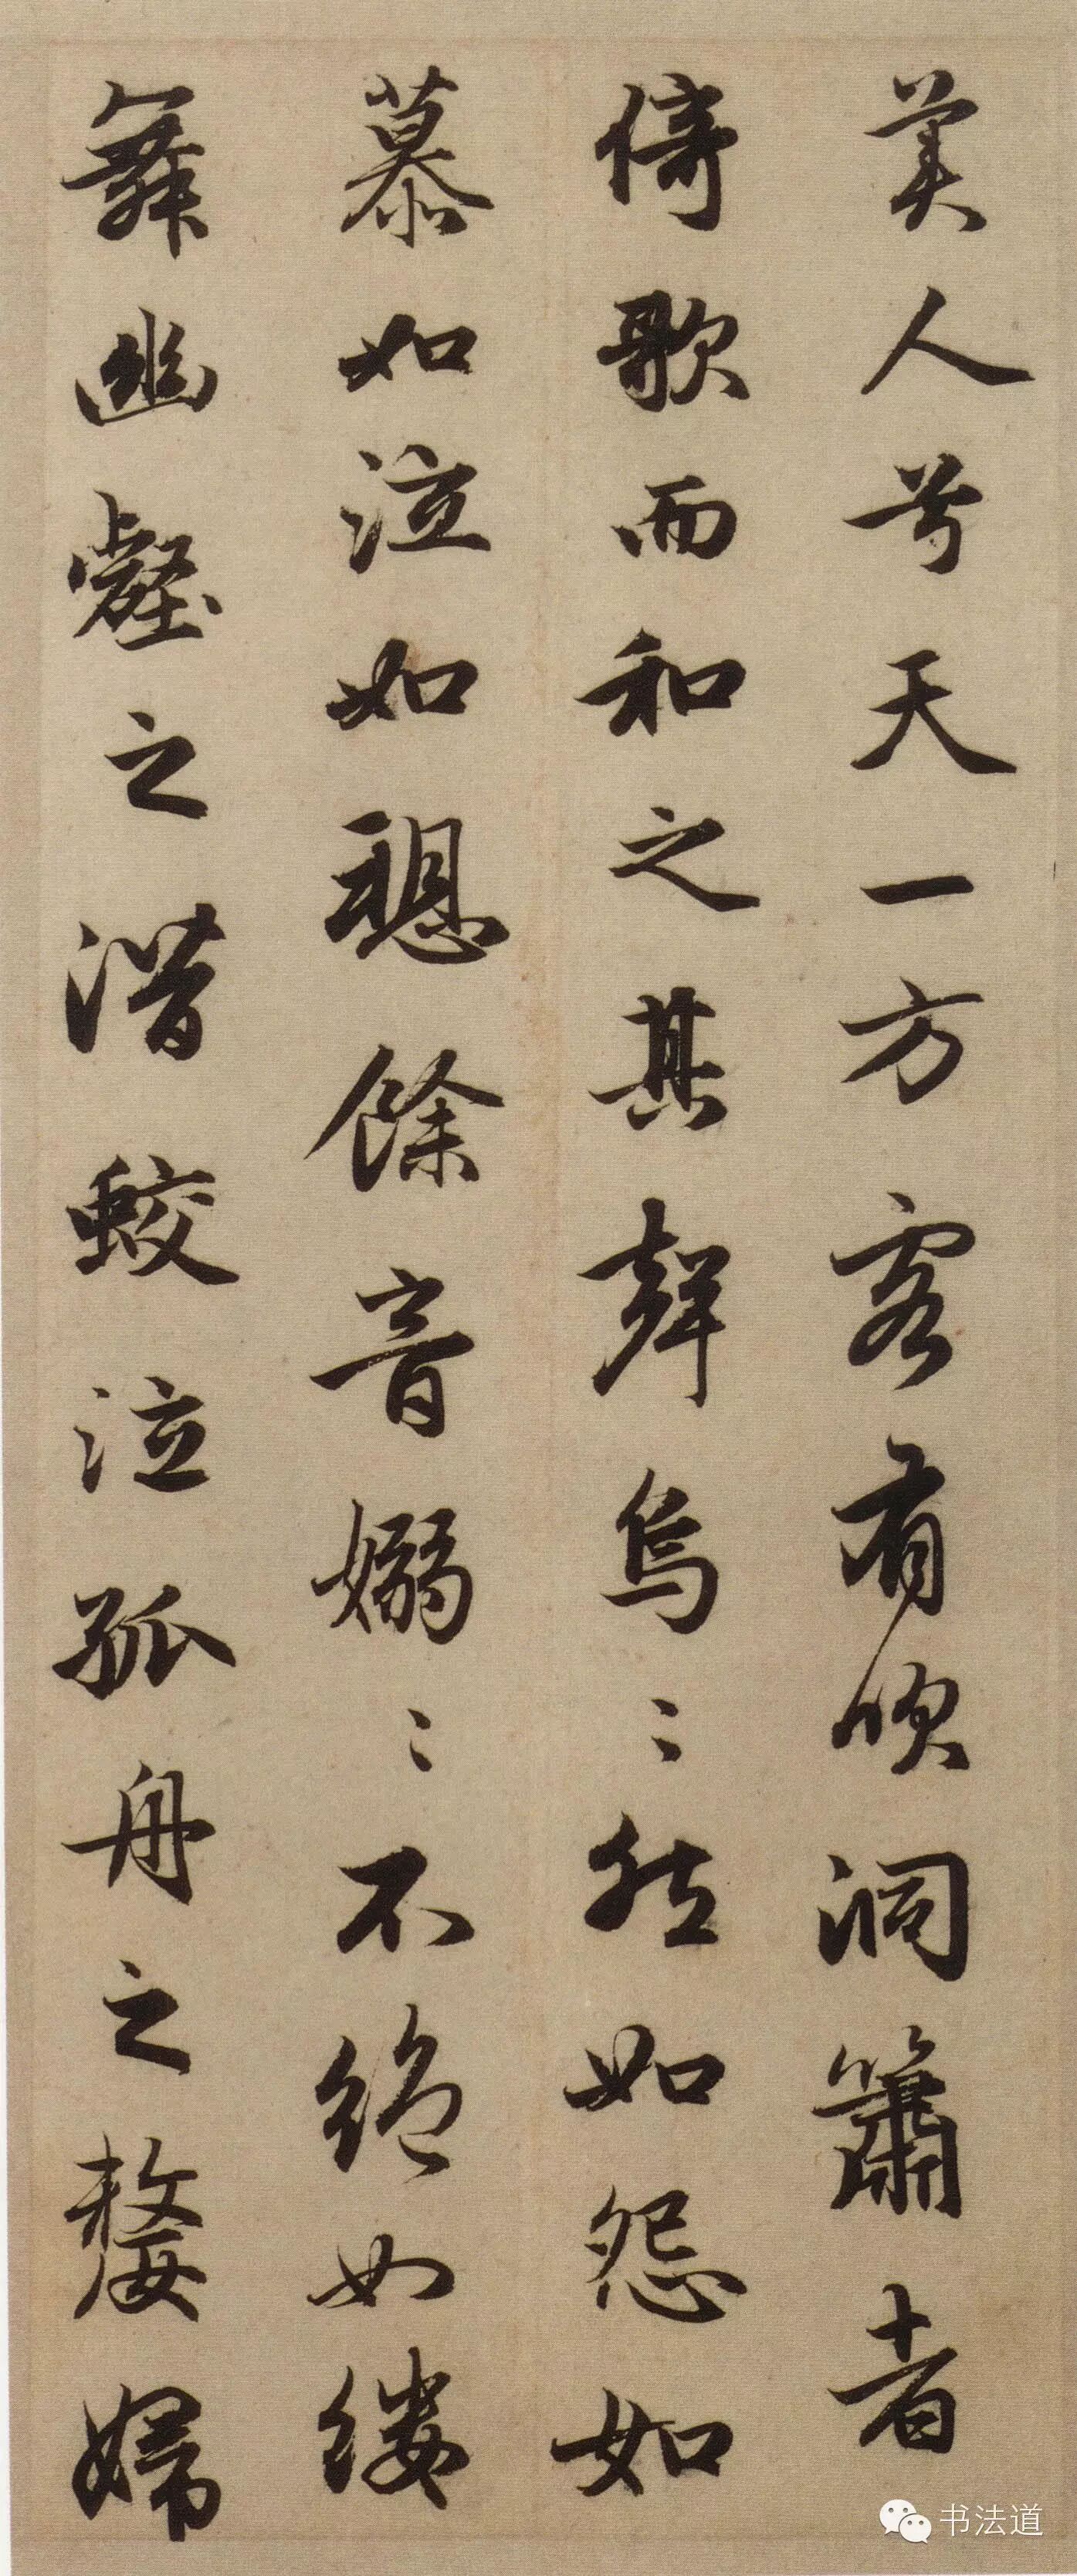 美人兮天一方客有吹洞簫者
倚歌而和之其聲烏〻然如怨如
慕如泣如餘音嫋〻不絕如縷
舞幽壑之潛蛟泣孤舟之嫠婦
书法道